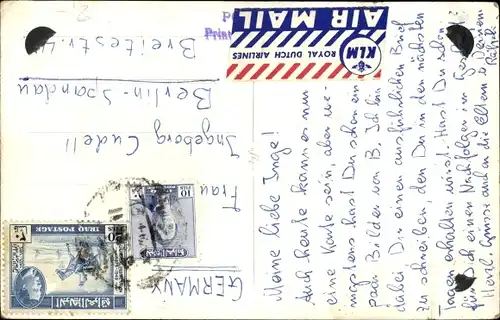 Meine liebe Inge!
Auch heute kann es nur
eine Karte sein, aber we-
nigstens hast Du schon ein
paar Bilder von B. Ich bin
dabei Dir einen ausführlichen Brief
zu schreiben, den Du in den nächsten
Tagen erhalten wirst. Hast Du schon
für Dich einen Nachfolger im Geschäft?
Herzl. Grüsse auch an die Eltern Deine
AIR MAIL
ROYAL DUTCH AIRLINES
KLM
Frau
Ingeborg Cudell
Berlin-Spandau
Breitestr.
GERMANY
IRAQ POSTAGE
10